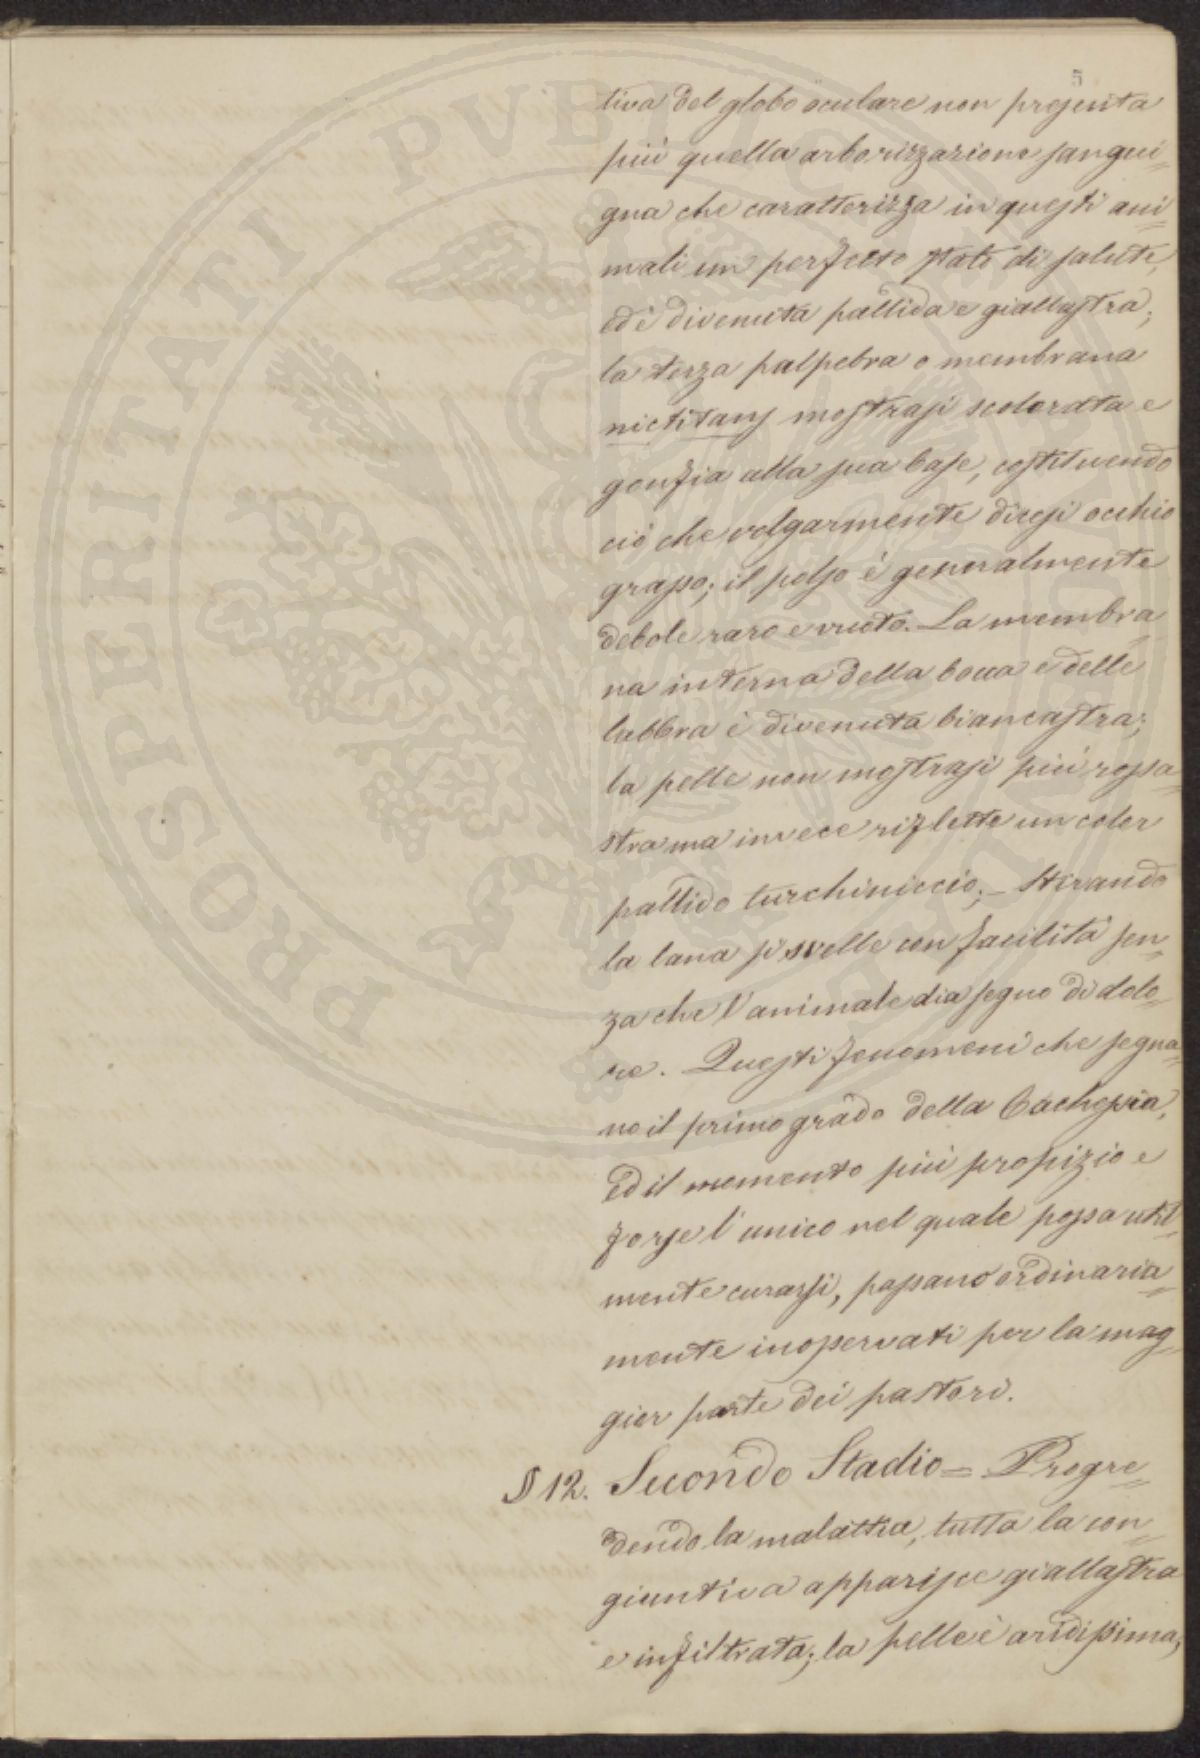 5
tiva del globo oculare non presenta
più quella arborizzazione sangui=
gna che caratterizza in questi ani=
mali un perfetto stato di salute,
ed è divenuta pallida e giallastra;
la terza palpebra o membrana
nictitans mostrasi scolorata e
gonfia alla sua base, costituendo
ciò che volgarmente dicesi occhio
grasso; il polso è generalmente
debole raro e vuoto. La membra=
na interna della bocca e delle
labbra è divenuta biancastra;
la pelle non mostrasi più rossa=
stra ma invece riflette un color
pallido turchiniccio; - Stirando
la lana si svelle con facilità sen=
za che l'animale dia segno di dolo=
re. Questi fenomeni che segna=
no il primo grado della Cachessia,
ed il momento più propizio e
forse l'unico nel quale possa util=
mente curarsi, passano ordinaria=
mente inosservati per la mag=
gior parte dei pastori.
§ 12. Secondo Stadio = Progre=
dendo la malattia, tutta la con=
giuntiva apparisce giallastra
e infiltrata; la pelle è aridissima,
PROSPERITATI PVBLICAE